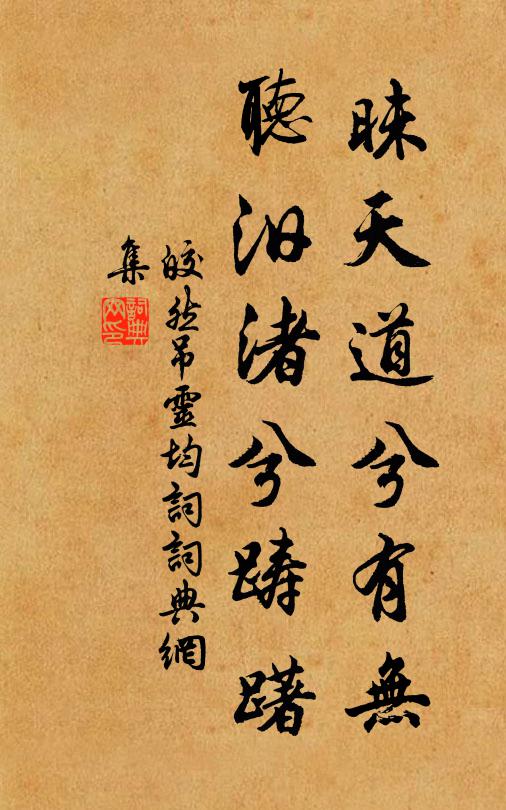 昧天道兮有無
聽汨渚兮躊躇
皎然吊靈均詞詞典網
集